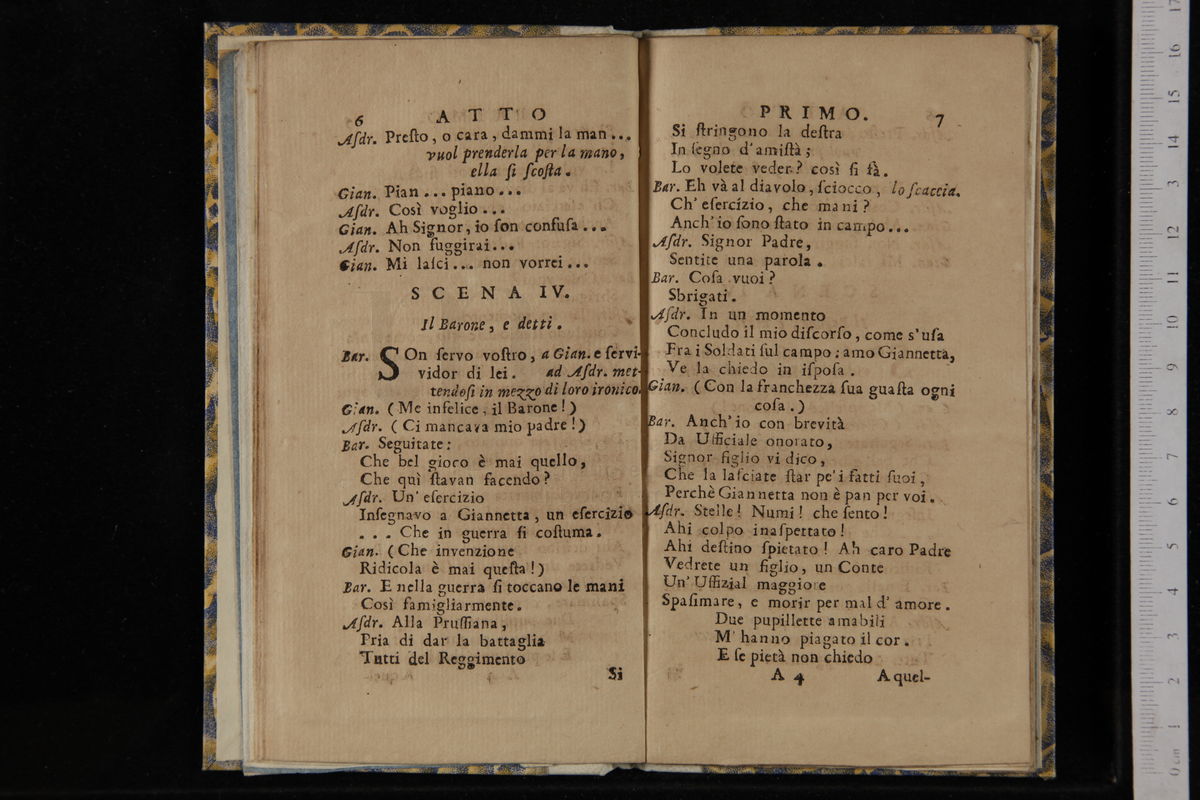 6 ATTO
Aſdr. Preſto, o cara, dammi la man...
vuol prenderla per la mano,
ella ſi ſcoſta.
Gian. Pian... piano...
Aſdr. Così voglio...
Gian. Ah Signor, io ſon confuſa...
Aſdr. Non fuggirai...
Gian. Mi laſci... non vorrei...
SCENA IV.
Il Barone, e detti.
Bar. SOn ſervo voſtro, a Gian. e ſervi-
vidor di lei. ad Aſdr. met-
tendoſi in mezzo di loro ironico.
Gian. (Me infelice, il Barone!)
Aſdr. (Ci mancava mio padre!)
Bar. Seguitate:
Che bel gioco è mai quello,
Che quì ſtavan facendo?
Aſdr. Un' eſercizio
Inſegnavo a Giannetta, un eſercizio
... Che in guerra ſi coſtuma.
Gian. (Che invenzione
Ridicola è mai queſta!)
Bar. E nella guerra ſi toccano le mani
Così famigliarmente.
Aſdr. Alla Pruſſiana,
Pria di dar la battaglia
Tutti del Reggimento
Si
PRIMO. 7
Si ſtringono la deſtra
In ſegno d'amiſtà;
Lo volete veder? così ſi fà.
Bar. Eh và al diavolo, ſciocco, lo ſcaccia.
Ch' eſercízio, che mani?
Anch' io ſono ſtato in campo...
Aſdr. Signor Padre,
Sentite una parola.
Bar. Coſa vuoi?
Sbrigati.
Aſdr. In un momento
Concludo il mio diſcorſo, come s'uſa
Fra i Soldati ſul campo: amo Giannetta,
Ve la chiedo in iſpoſa.
Gian. (Con la franchezza ſua guaſta ogni
coſa.)
Bar. Anch' io con brevità
Da Ufficiale onorato,
Signor figlio vi dico,
Che la laſciate ſtar pe' i fatti ſuoi,
Perchè Giannetta non è pan per voi.
Aſdr. Stelle! Numi! che ſento!
Ahi colpo inaſpettato!
Ahi deſtino ſpietato! Ah caro Padre
Vedrete un figlio, un Conte
Un' Uffizial maggiore
Spaſimare, e morir per mal d' amore.
Due pupillette amabili
M' hanno piagato il cor.
E ſe pietà non chiedo
A 4 A quel-
0 cm 1 2 3 4 5 6 7 8 9 10 11 12 13 14 15 16 17